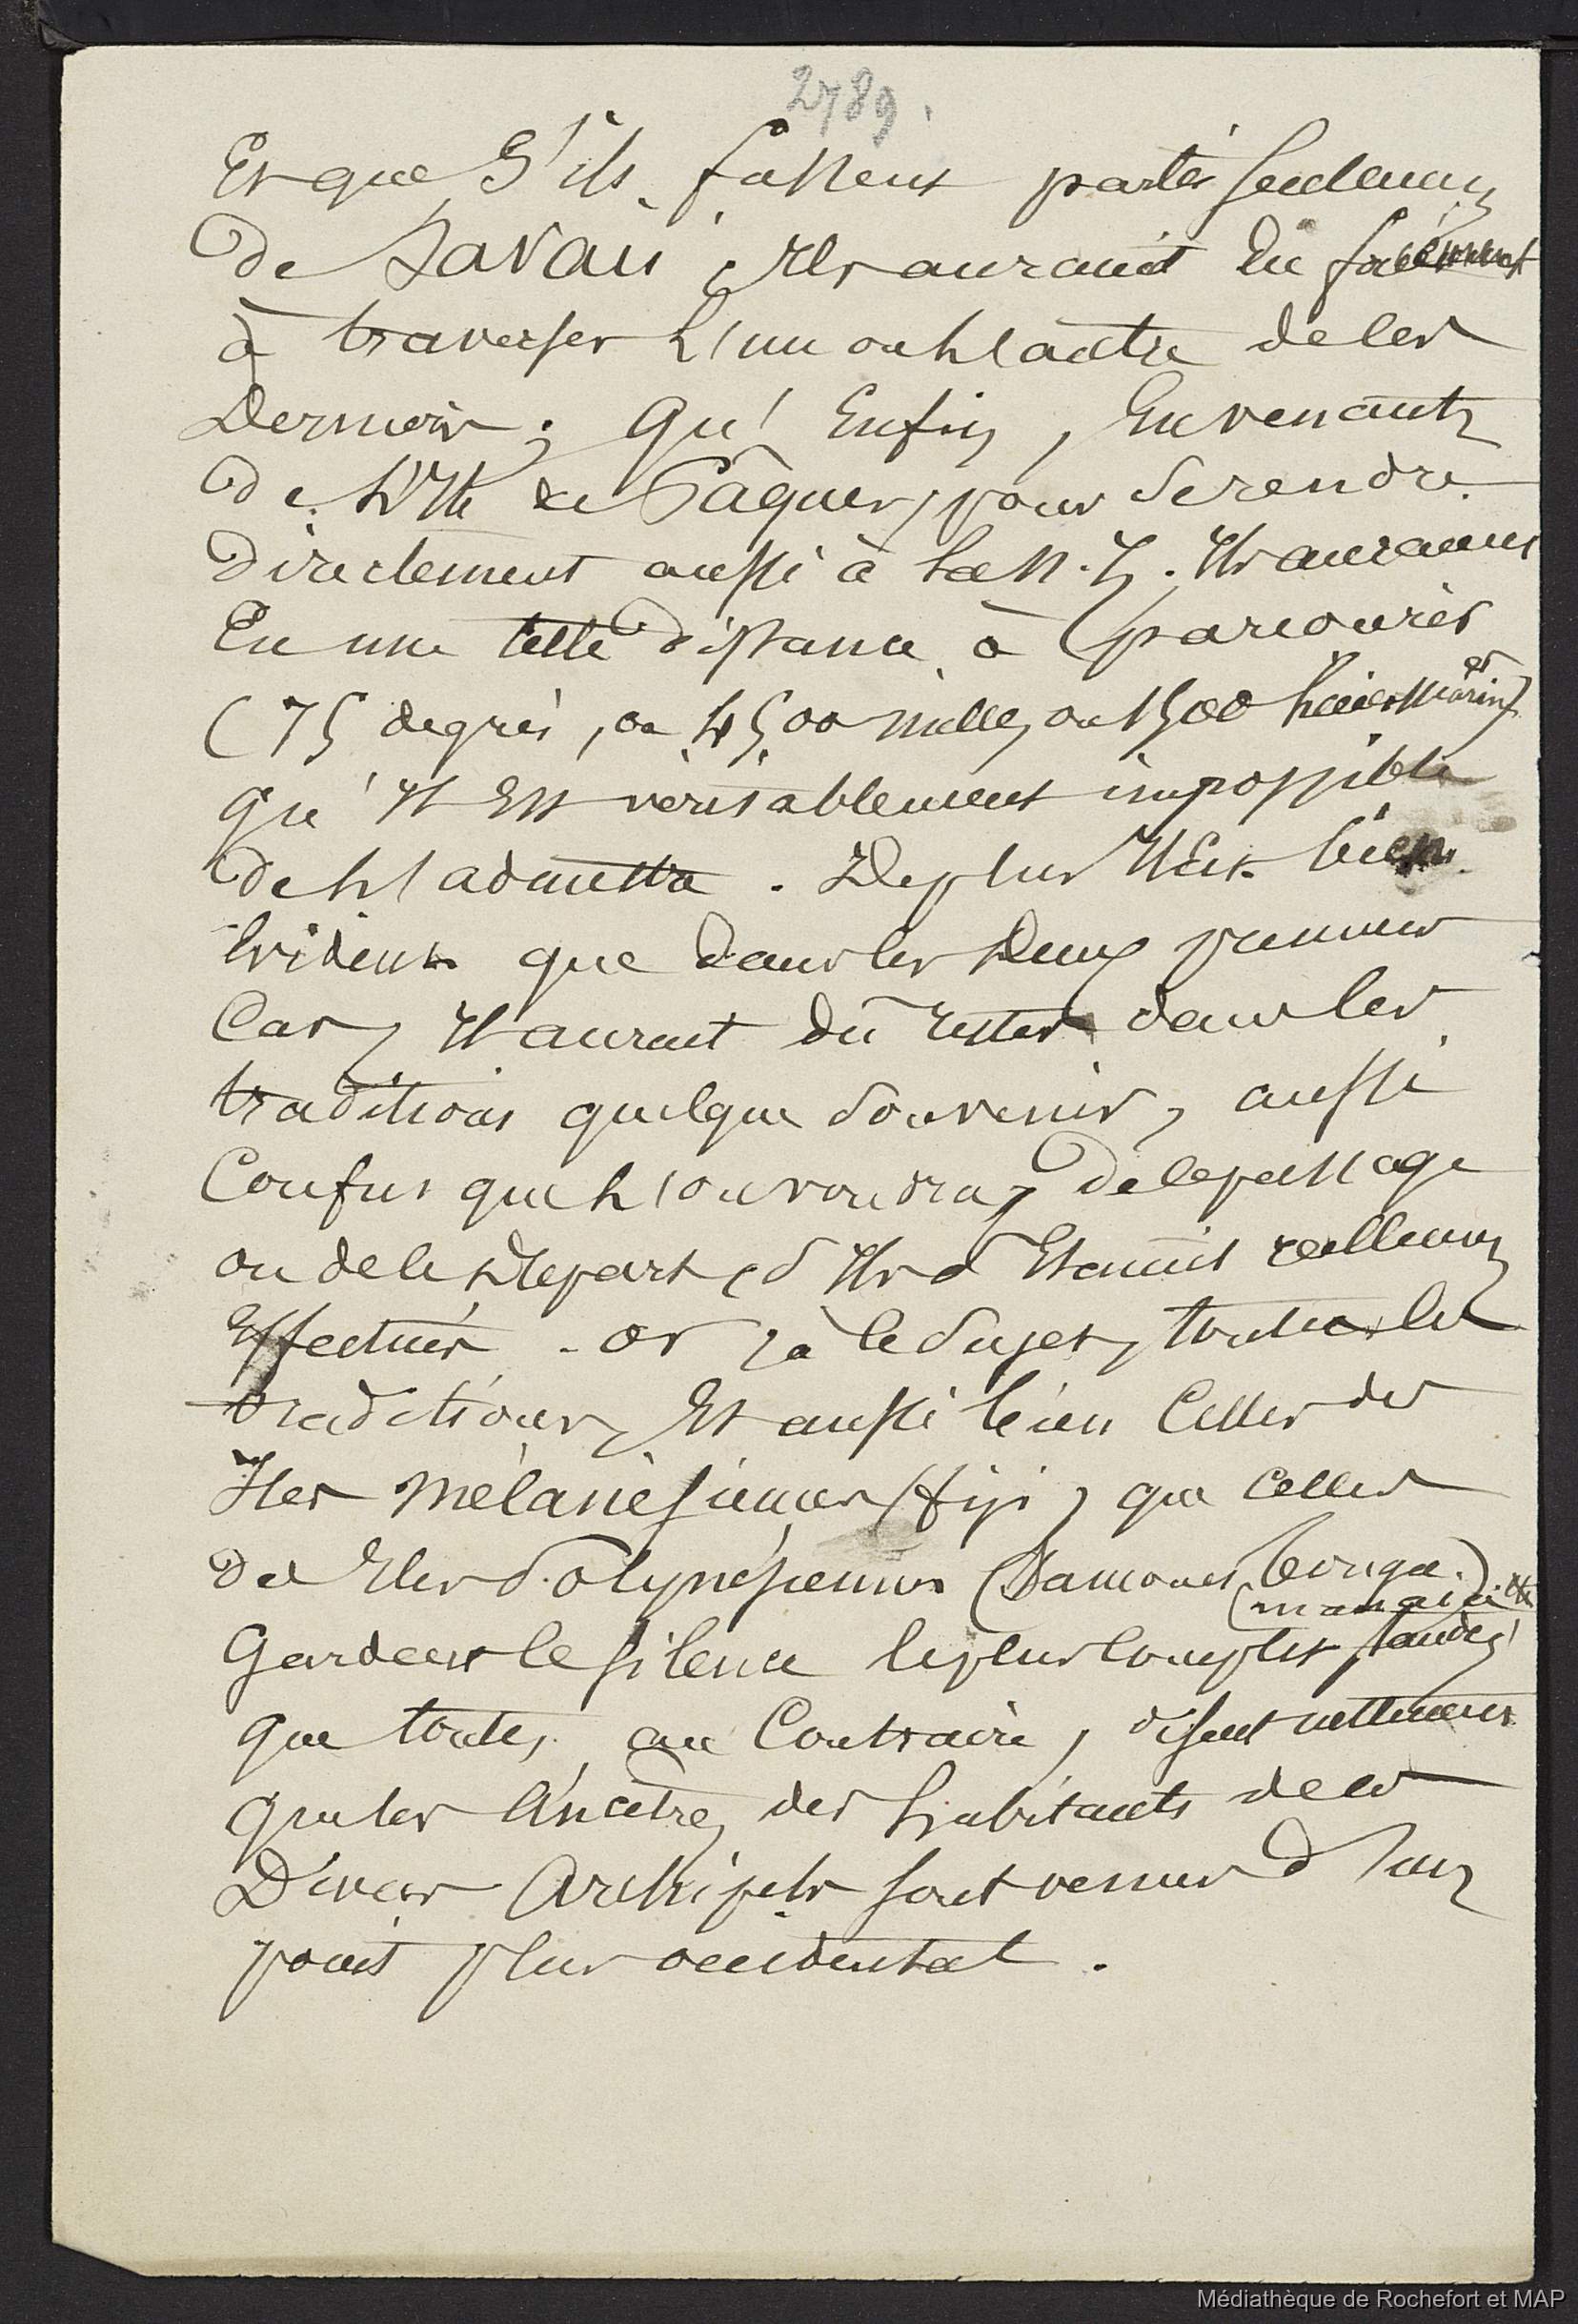 2789.
Et que s'ils fussent partis seulement
de Savaii, ils auraient eu forcément
à traverser l'un ou l'autre de ces
derniers ; qu'enfin, en venant
de l'Ile de Pâques, pour se rendre
directement aussi à la N. Z. ils auraient
eu une telle distance à parcourir
(75 degrés, ou 4500 milles, ou 1500 lieues marines)
qu'il est véritablement impossible
de l'admettre. De plus il est bien
évident que dans les deux premiers
cas, il aurait dû rester dans les
traditions quelque souvenir, aussi
confus que l'on voudra, de ce passage
ou de ce départ, s'ils s'étaient réellement
effectués. Or, à ce sujet, toutes les
traditions, et aussi bien celles des
Iles mélanésiennes Fiji, que celles
des Iles Polynésiennes (Samoa, Tonga,
(mangaia) etc
gardent le silence le plus complet, tandis
que toutes, au contraire, disent nettement
que les ancêtres des habitants de ces
divers archipels sont venus d'un
point plus occidental.
Médiathèque de Rochefort et MAP